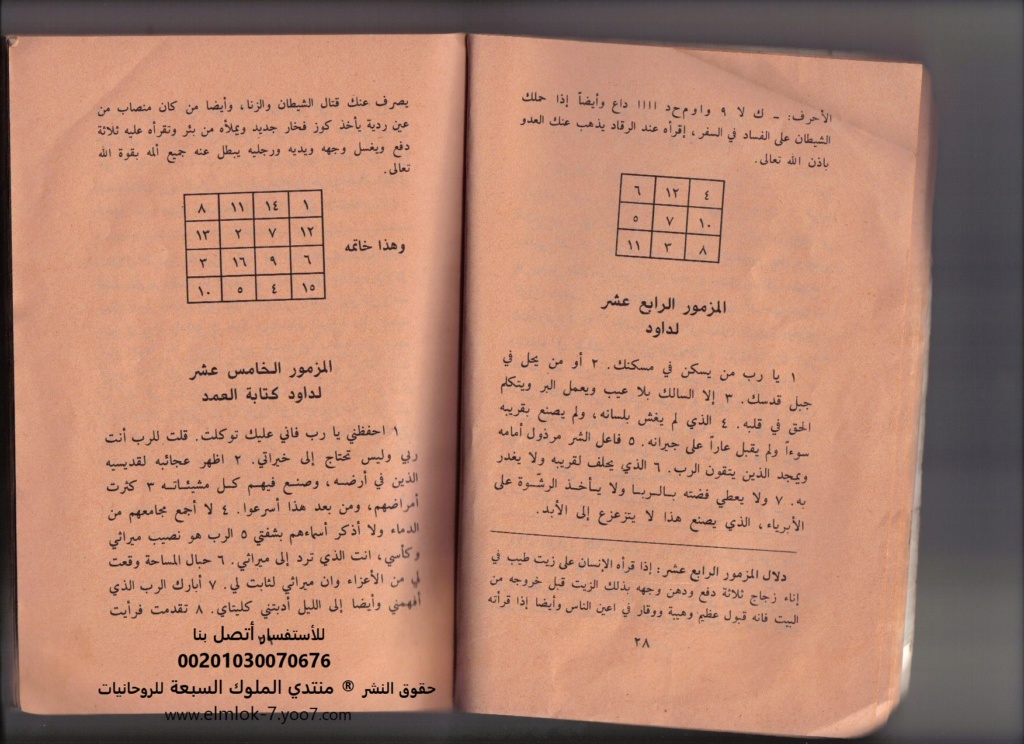 الأحرف: ـ ك لا ٩ واوم‍ح‍د ا ا ا ا داع وأيضاً إذا حملك
الشيطان على الفساد في السفر، إقرأه عند الرقاد يذهب عنك العدو
باذن الله تعالى.
٤ ١٢ ٦
١٠ ٧ ٥
٨ ٣ ١١
المزمور الرابع عشر
لداود
١ يا رب من يسكن في مسكنك. ٢ أو من يحل في
جبل قدسك. ٣ إلا السالك بلا عيب ويعمل البر ويتكلم
الحق في قلبه. ٤ الذي لم يغش بلسانه، ولم يصنع بقريبه
سوءاً ولم يقبل عاراً على جيرانه. ٥ فاعل الشر مرذول أمامه
ويمجد الذين يتقون الرب. ٦ الذي يحلف لقريبه ولا يغدر
به. ٧ ولا يعطي فضته بالربا ولا يأخذ الرشوة على
الأبرياء، الذي يصنع هذا لا يتزعزع إلى الأبد.
دلال المزمور الرابع عشر: إذا قرأه الإنسان على زيت طيب في
إناء زجاج ثلاثة دفع ودهن وجهه بذلك الزيت قبل خروجه من
البيت فانه قبول عظيم وهيبة ووقار في اعين الناس وأيضا إذا قرأته
٢٨
يصرف عنك قتال الشيطان والزنا، وأيضا من كان منصاب من
عين ردية يأخذ كوز فخار جديد ويملأه من بئر وتقرأه عليه ثلاثة
دفع ويغسل وجهه ويديه ورجليه يبطل عنه جميع ألمه بقوة الله
تعالى.
١ ١٤ ١١ ٨
١٢ ٧ ٢ ١٣
وهذا خاتمه
٦ ٩ ١٦ ٣
١٥ ٤ ٥ ١٠
المزمور الخامس عشر
لداود كتابة العمد
١ احفظني يا رب فاني عليك توكلت. قلت للرب أنت
ربي وليس تحتاج إلى خيراتي. ٢ اظهر عجائبه لقديسيه
الذين في أرضه، وصنع فيهم كل مشيئاته ٣ كثرت
أمراضهم، ومن بعد هذا أسرعوا. ٤ لا أجمع مجامعهم من
الدماء ولا أذكر أسماءهم بشفتي ٥ الرب هو نصيب ميراثي
وكأسي، انت الذي ترد إلى ميراثي. ٦ حبال المساحة وقعت
لي من الأعزاء وان ميراثي لثابت لي. ٧ أبارك الرب الذي
أفهمني وأيضا إلى الليل أدبتني كليتاي. ٨ تقدمت فرأيت
للأستفسار أتصل بنا
00201030070676
حقوق النشر ® منتدي الملوك السبعة للروحانيات
www.elmlok-7.yoo7.com